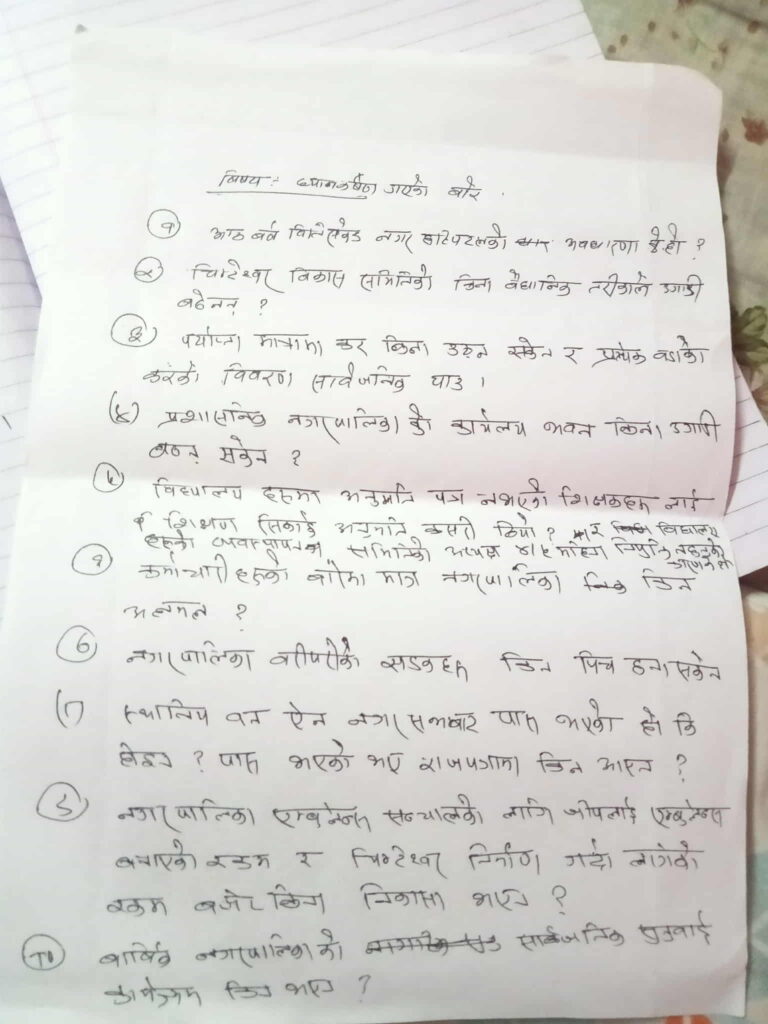 विषय : ध्यानाकर्षण गरेको बारे .
१ आठ वर्ष बितिसक्दा नगर अवधारणा के हो ?
२ चिण्टेश्वर विकास समितिको किन वैधानिक तरीकाले उगाडी
बढेनन् ?
३ पर्याप्त मात्रामा कर किन उठ्न सकेन र प्रत्येक वडाको
करको विवरण सार्वजनिक पाउ ।
(४) प्रशासनिक नगरपालिका को कार्यलय भवन किन उगाडी
बढ्न सकेन ?
५ विद्यालय हरुमा अनुमति पत्र नभएको शिक्षकहरु लाई
शिक्षण सिकाई अनुमति कसरी दियो ? र विद्यालय
हरुको व्यवस्थापनका समितिको अध्यक्ष महिना नियुक्ति
कर्मचारीहरुको बारेमा मात्र नगरपालिका किन
अलमल ?
६ नगरपालिका वरीपरीको सडकहरु किन पिच हुन सकेन
(७ स्थानिय वन ऐन नगर सभाबाट पास भएको हो कि
होइन ? पास भएको भए राजपत्रमा किन आएन ?
८ नगरपालिका एम्बुलेन्स सञ्चालको लागि जीपलाई एम्बुलेन्स
बनाएको रकम र चिण्टेश्वर निर्माण गर्दा लागेको
रकम बजेट किन निकासा भएन ?
१० वार्षिक नगरपालिका को सार्वजनिक सुनुवाई
कार्यक्रम किन भएन ?